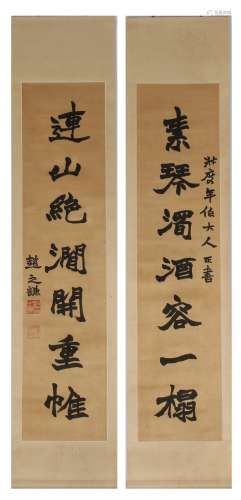 素琴濁酒容一榻
壯廣年伯大人正書
連山絕澗開重帷
趙之謙